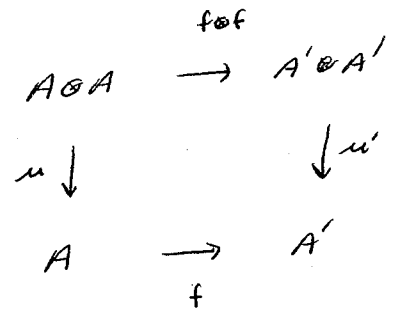 f⊗f
A⊗A → A'⊗A'
μ ↓ ↓ μ'
A → A'
f